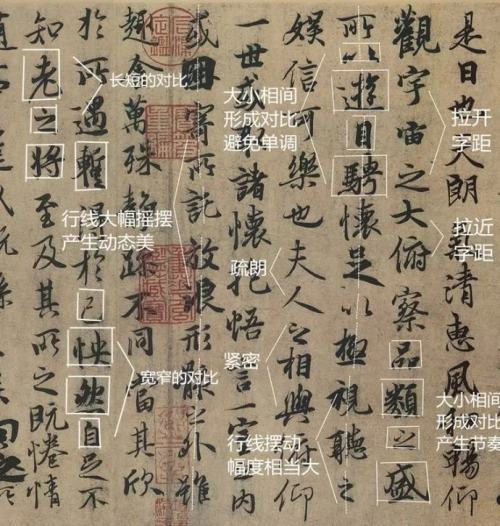 是日也天朗氣清惠風和暢仰
觀宇宙之大俯察品類之盛
所以遊目騁懷足以極視聽之
娛信可樂也夫人之相與俯仰
一世或取諸懷抱悟言一室之内
或因寄所託放浪形骸之外雖
趣舍萬殊靜躁不同當其欣
於所遇暫得於己怏然自足不
知老之將至及其所之既惓情
拉开
字距
拉近
字距
大小相间
形成对比
产生节奏
大小相间
形成对比
避免单调
疏朗
紧密
行线摆动
幅度相当大
长短的对比
行线大幅摇摆
产生动态美
宽窄的对比